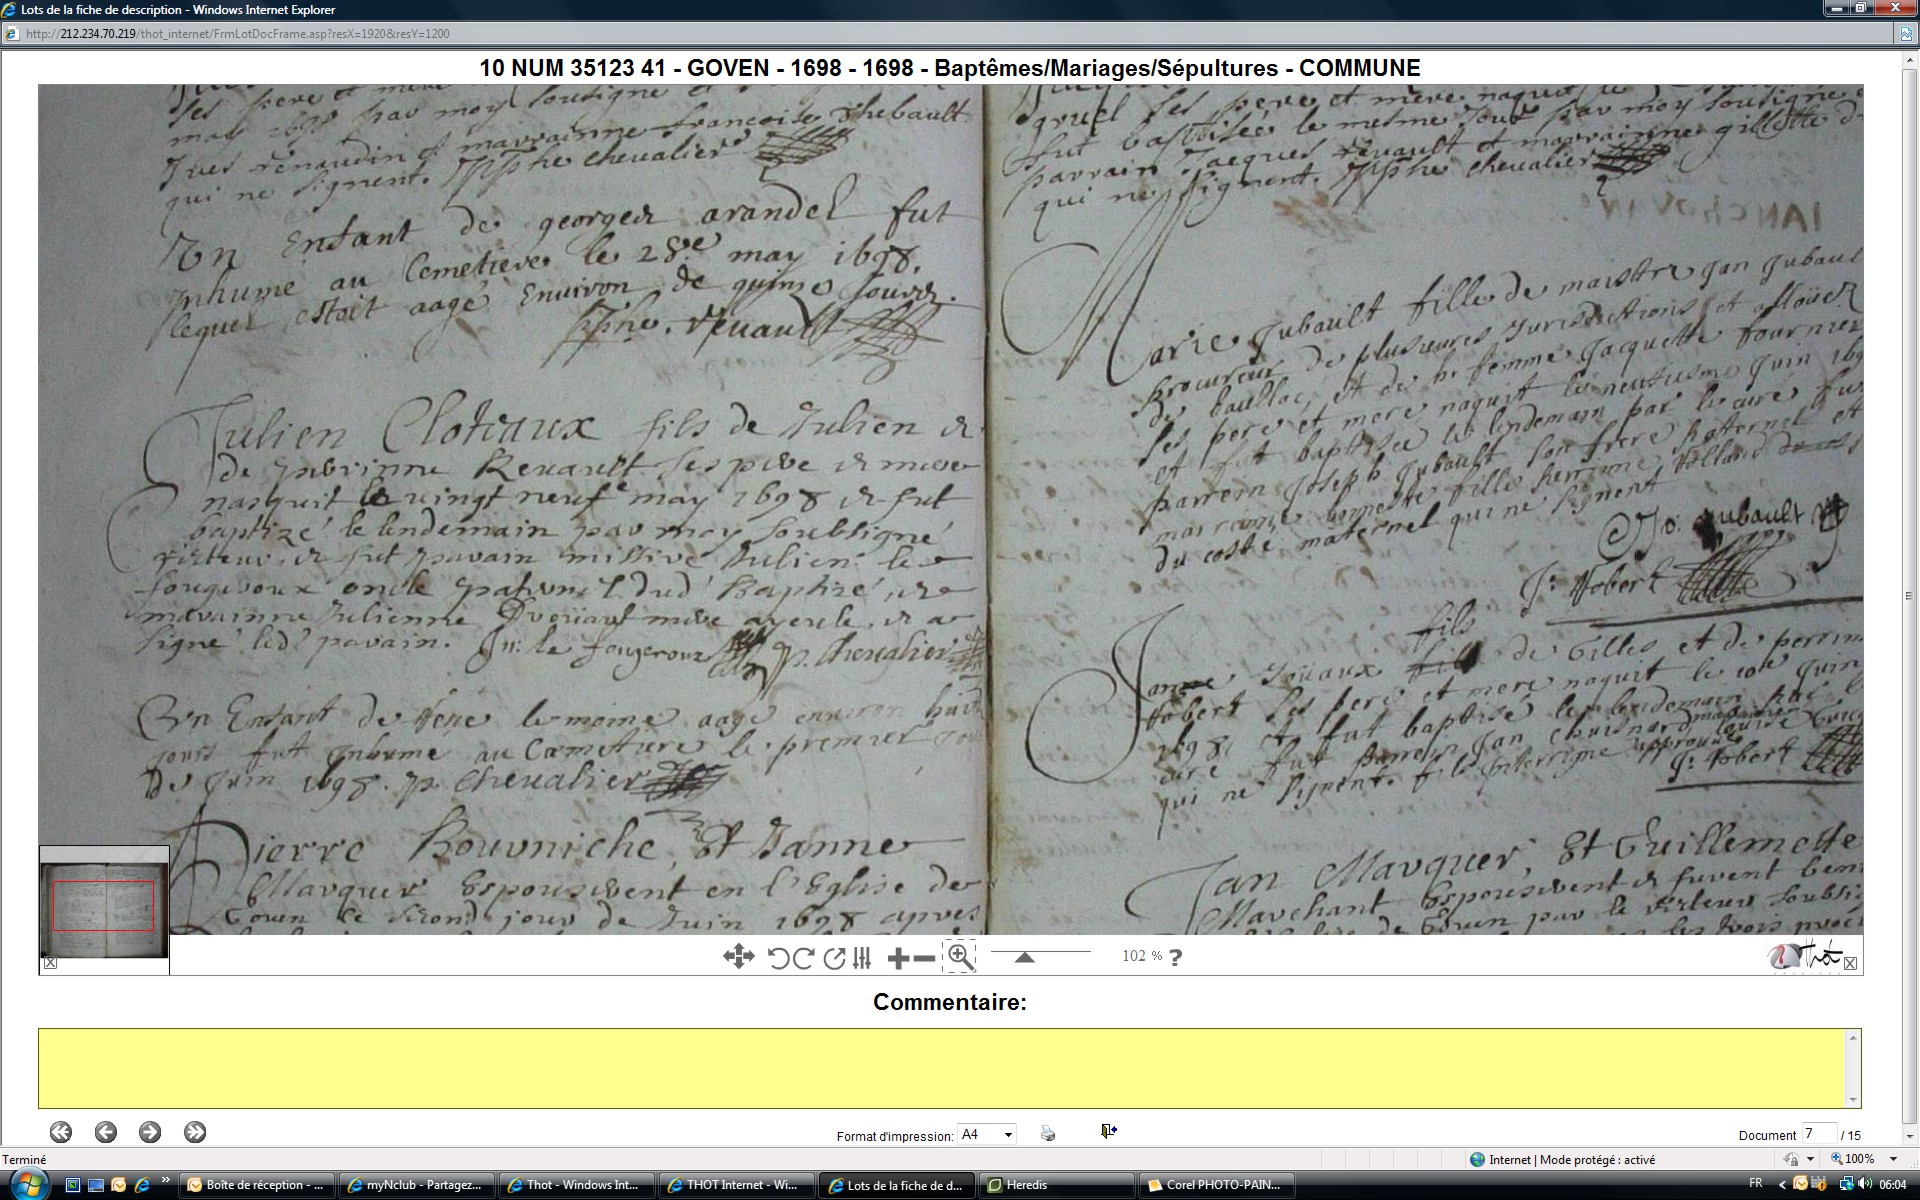 Lots de la fiche de description - Windows Internet Explorer
http://212.234.70.219/thot_internet/FrmLotDocFrame.asp?resX=1920&resY=1200
10 NUM 35123 41 - GOVEN - 1698 - 1698 - Baptêmes/Mariages/Sépultures - COMMUNE
ses pere et mere
may 1698 par moy soussigné et
Yves renaudin et marrainne francoise Thebault
qui ne signent. chevalier
Un Enfant de georges arandel fut
Inhumé au Cemetiere le 28e may 1698.
lequel estoit aagé Environ de quinze Jours.
reuault
Julien Cloteaux fils de Julien et
de perrinne Reuault ses pere et mere
nasquit le vingt neuf may 1698 et fut
baptizé le lendemain par moy soubsigné
recteur et fut parain missire Julien le
fougeroux oncle paternel dud baptizé, et
maraínne Julienne Drouault mere ayeule, et a
signé led parain. Ju: le fougeroux p. chevalier
Un Enfant de René le moine aagé environ huit
jours fut inhumé au Cemetiere le premier jour
de Juin 1698. p. chevalier
Pierre Rouvniche, Et Janne
Marquer Espouserent en l'Eglise de
Goven le second jour de Juin 1698 apres
gruel ses pere et mere naquit le
fut baptisée le mesme jour par moy soussigné
parrain Jacques reuault et marrainne gillette
qui ne signent. chevalier
Marie Gubault fille de maistre Jan Gubault
procureur de plusieures Jurisdictions et
de baullac, et de h. femme Jacquette fournier
ses pere et mere naquit le neufiesme Juin 169
et fut baptisée le lendemain par le curé fut
parrein Joseph Gubault son frere patternel et
marrainne honneste fille perrinne Rolland
du costé maternel qui ne signent
Jo: Gubault
J: Hobert
fils
Janne Jouaux de Gilles et de perrin
Hobert ses pere et mere naquit le 10e Juin
1698 et fut baptisé le lendemain par le
curé fut parrein Jan Chuisnard
qui ne signent. fils interligne approuvé
J: Hobert
Jan Marquer, Et Guillemette
Marchant Espouserent et furent beni
par le recteur soubsi
les trois
102 % ?
Thot
Commentaire:
Format d'impression: A4
Document 7 / 15
Terminé
Internet | Mode protégé : activé
100%
Boîte de réception - ...
myNclub - Partagez...
Thot - Windows Int...
THOT Internet - Wi...
Lots de la fiche de d...
Heredis
Corel PHOTO-PAIN...
FR
06:04